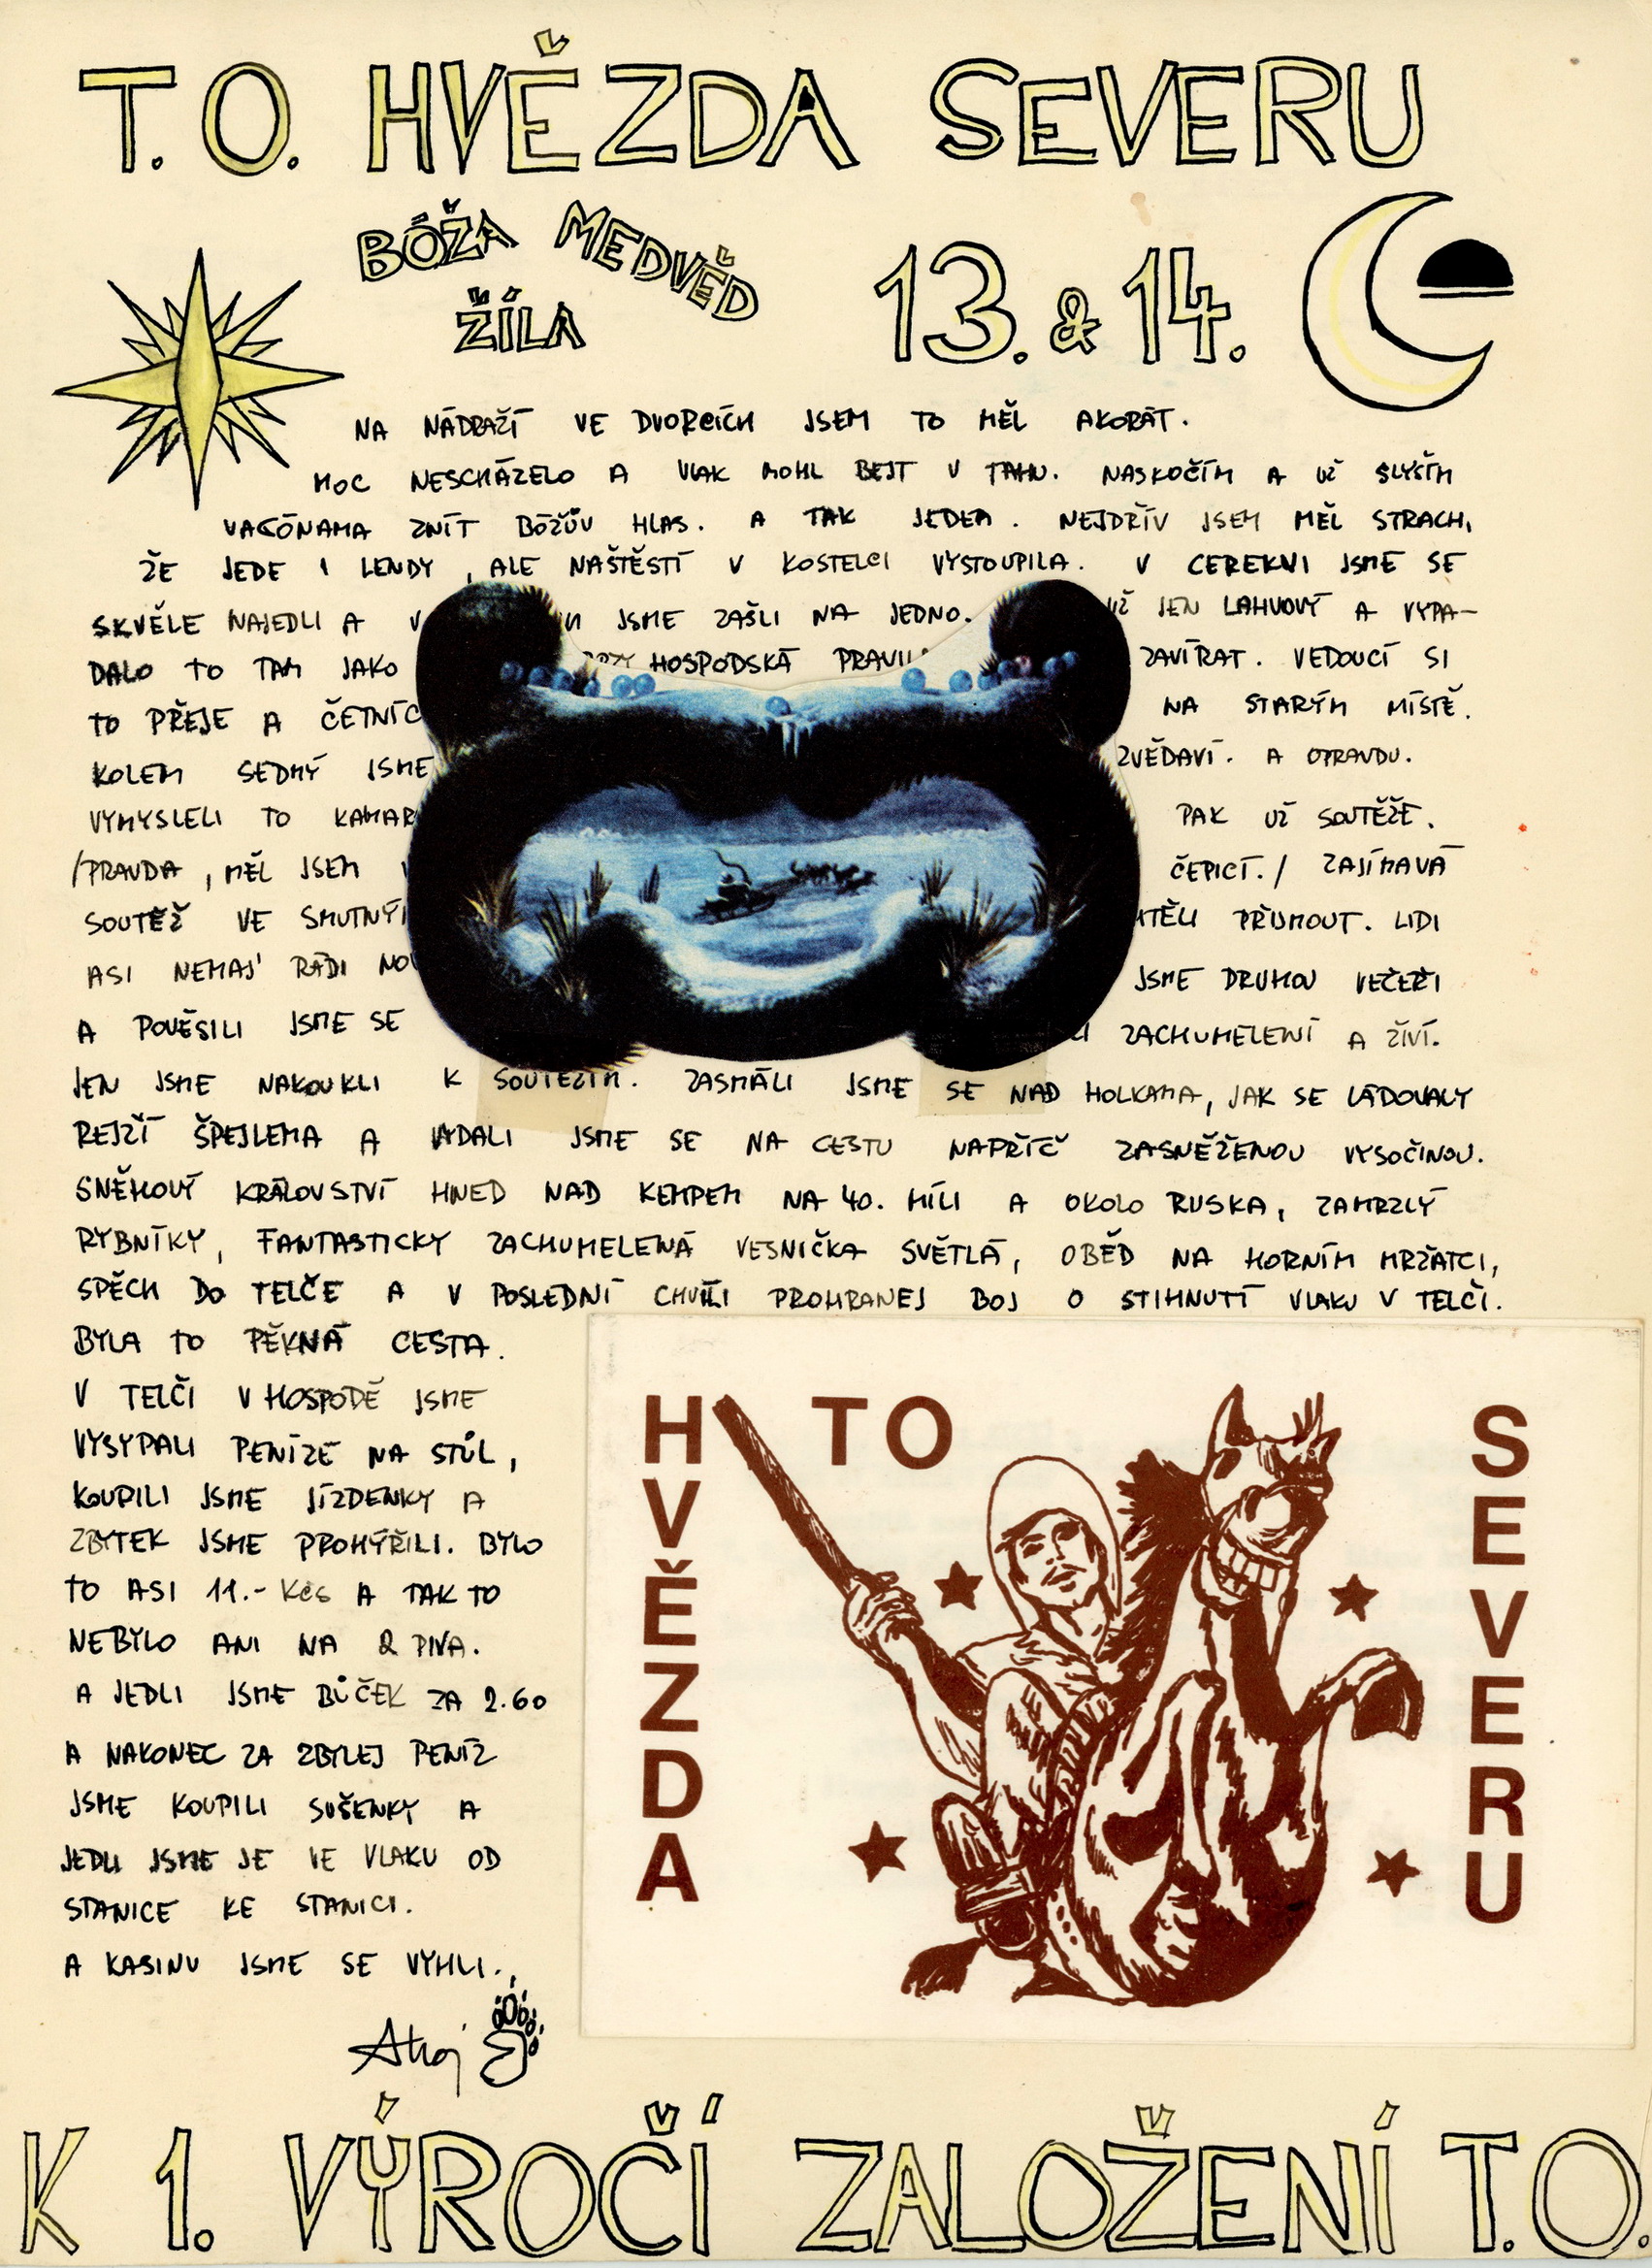 T.O. HVĚZDA SEVERU
BÓŽA MEDVĚD
ŽÍLA
13. & 14.
NA NÁDRAŽÍ VE DVORCÍCH JSEM TO MĚL AKORÁT.
MOC NESCHÁZELO A VLAK MOHL BEJT V TAHU. NASKOČÍM A UŽ SLYŠÍM
VAGÓNAMA ZNÍT BÓŽŮV HLAS. A TAK JEDEM. NEJDŘÍV JSEM MĚL STRACH,
ŽE JEDE I LENDY, ALE NAŠTĚSTÍ V KOSTELCI VYSTOUPILA. V CEREKVI JSME SE
SKVĚLE NAJEDLI A V JSME ZAŠLI NA JEDNO. UŽ JEN LAHVOVÝ A VYPA-
DALO TO TAM JAKO HOSPODSKÁ PRAVIL ZAVÍRAT. VEDOUCÍ SI
TO PŘEJE A ČETNÍC NA STARÝM MÍSTĚ.
KOLEM SEDMÝ JSME ZVĚDAVÍ. A OPRAVDU.
VYMYSLELI TO KAMAR PAK UŽ SOUTĚŽE.
/PRAVDA, MĚL JSEM ČEPICÍ./ ZAJÍMAVÁ
SOUTĚŽ VE SMUTNÝ PŘIJMOUT. LIDI
ASI NEMAJ' RÁDI NO JSME DRUHOU VEČEŘI
A POVĚSILI JSME SE ZACHUMELENÍ A ŽIVÍ.
JEN JSME NAKOUKLI K SOUTĚŽÍM. ZASMÁLI JSME SE NAD HOLKAMA, JAK SE LÁDOVALY
REJŽÍ ŠPEJLEMA A VYDALI JSME SE NA CESTU NAPŘÍČ ZASNĚŽENOU VYSOČINOU.
SNĚHOVÝ KRÁLOVSTVÍ HNED NAD KEMPEM NA 40. MÍLI A OKOLO RUSKA, ZAMRZLÝ
RYBNÍKY, FANTASTICKY ZACHUMELENÁ VESNIČKA SVĚTLÁ, OBĚD NA HORNÍM MRŽATCI,
SPĚCH DO TELČE A V POSLEDNÍ CHVÍLI PROHRANEJ BOJ O STIHNUTÍ VLAKU V TELČI.
BYLA TO PĚKNÁ CESTA.
V TELČI V HOSPODĚ JSME
VYSYPALI PENÍZE NA STŮL,
KOUPILI JSME JÍZDENKY A
ZBYTEK JSME PROHÝŘILI. BYLO
TO ASI 11.- Kčs A TAK TO
NEBYLO ANI NA 2 PIVA.
A JEDLI JSME BŮČEK ZA 2.60
A NAKONEC ZA ZBYLEJ PENÍZ
JSME KOUPILI SUŠENKY A
JEDLI JSME JE VE VLAKU OD
STANICE KE STANICI.
A KASINU JSME SE VYHLI.
Ahoj
HVĚZDA
TO
SEVERU
K 1. VÝROČÍ ZALOŽENÍ T.O.